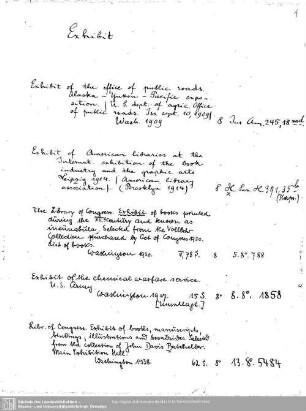 Exhibit
Exhibit of the office of public roads.
Alaska - Yukon - Pacific expo-
sition. / U.S. dept. of agric. Office
of public roads. Iss. sept. 10, 1909/
Wash. 1909 8
Exhibit of American libraries at the
Internat. exhibition of the book
industry and the graphic arts
Leipzig 1914. / American library
association. / (Brooklyn 1914) 8
The Library of Congress. Exhibit of books printed
during the XVth century and known as
incunabula, selected from the Vollbehr
Collection purchased by Act of Congress 1930.
List of books.
Washington 1930. 78 S. 8° 5.8° 788
Exhibit of the chemical warfare service.
U.S. Army
Washington 15 S. 8° 8.8° 1858
Libr. of Congress. Exhibit of books, manuscripts,
bindings, illustrations and broadsides selected
from the collection of John Davis Batchelder.
Main Exhibition Hall.
Washington 1938. 62 S. 8° 13.8.5484